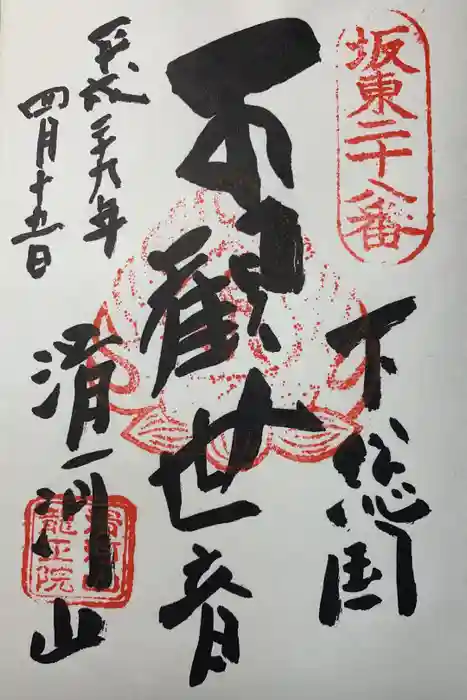 坂東二十八番
下総国
観世音
平成二十九年
四月十五日
滑河山
滑河山
龍正院